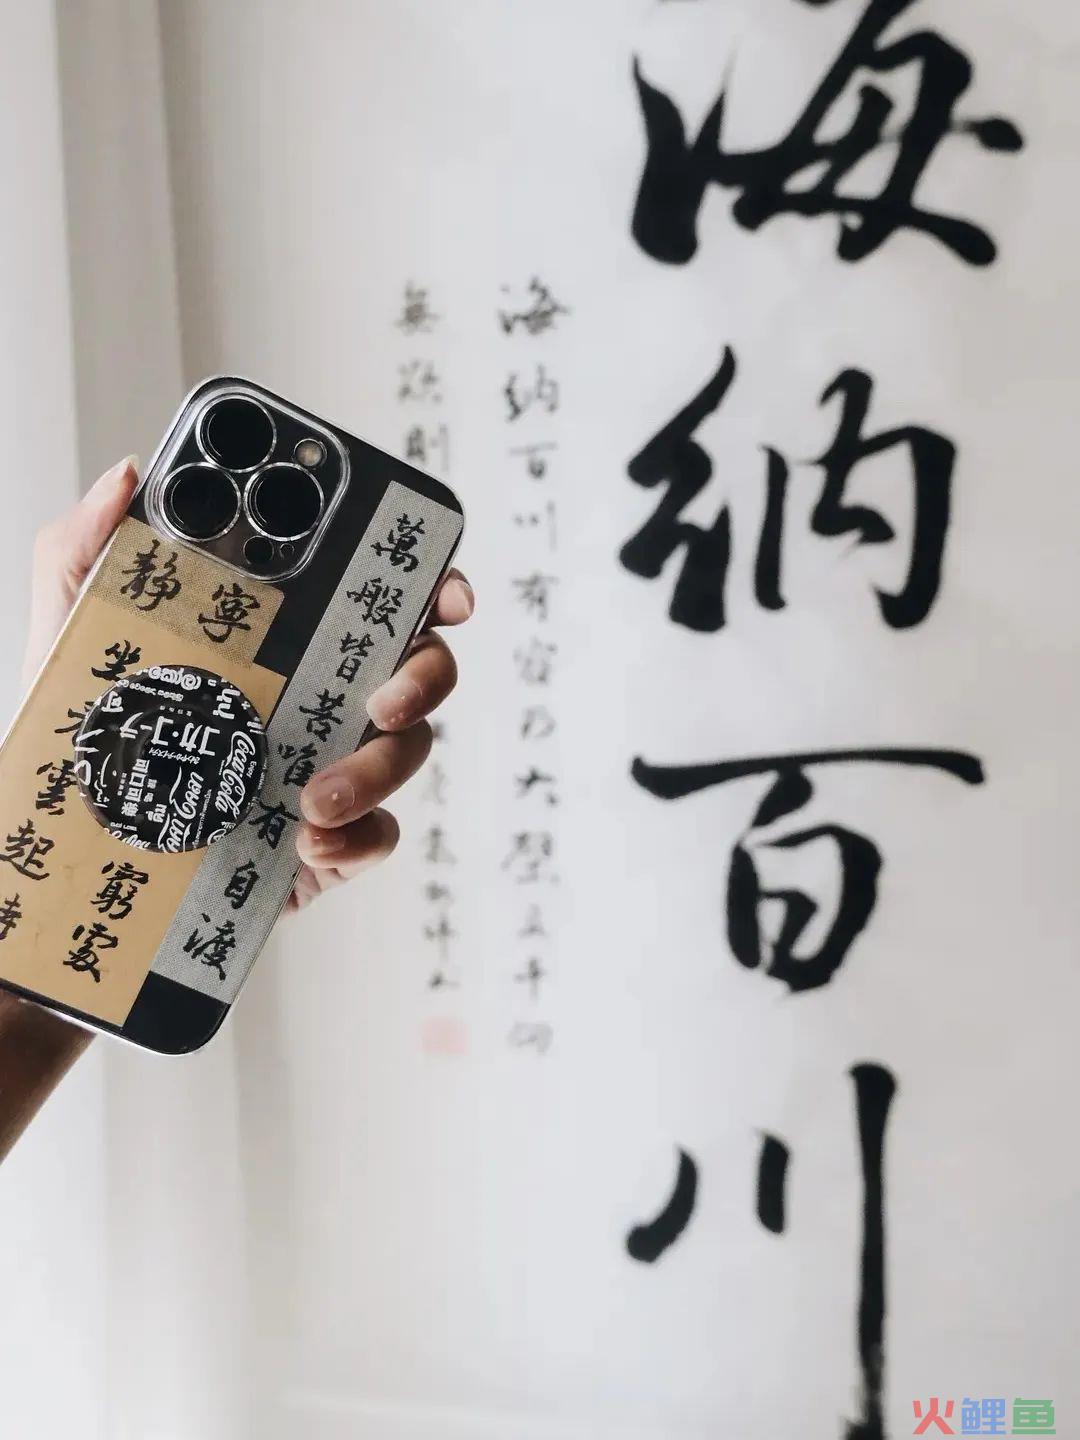 海納百川
海納百川有容乃大壁立千仞
無欲則剛
萬般皆苦唯有自渡
寧靜
窮處
坐看雲起時
コカ・コーラ
Coca-Cola
可口可樂
火鲤鱼